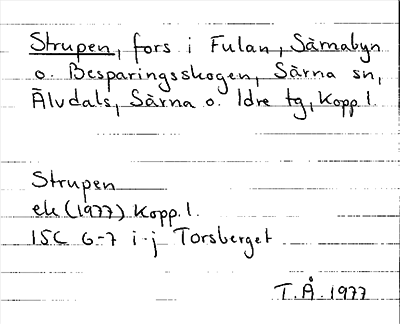 Strupen, fors i Fulan, Särnabyn
o. Besparingsskogen, Särna sn,
Älvdals, Särna o. Idre tg, Kopp. l.
Strupen
ek (1977) Kopp. l.
15C 6-7 i-j Torsberget
T.Å. 1977